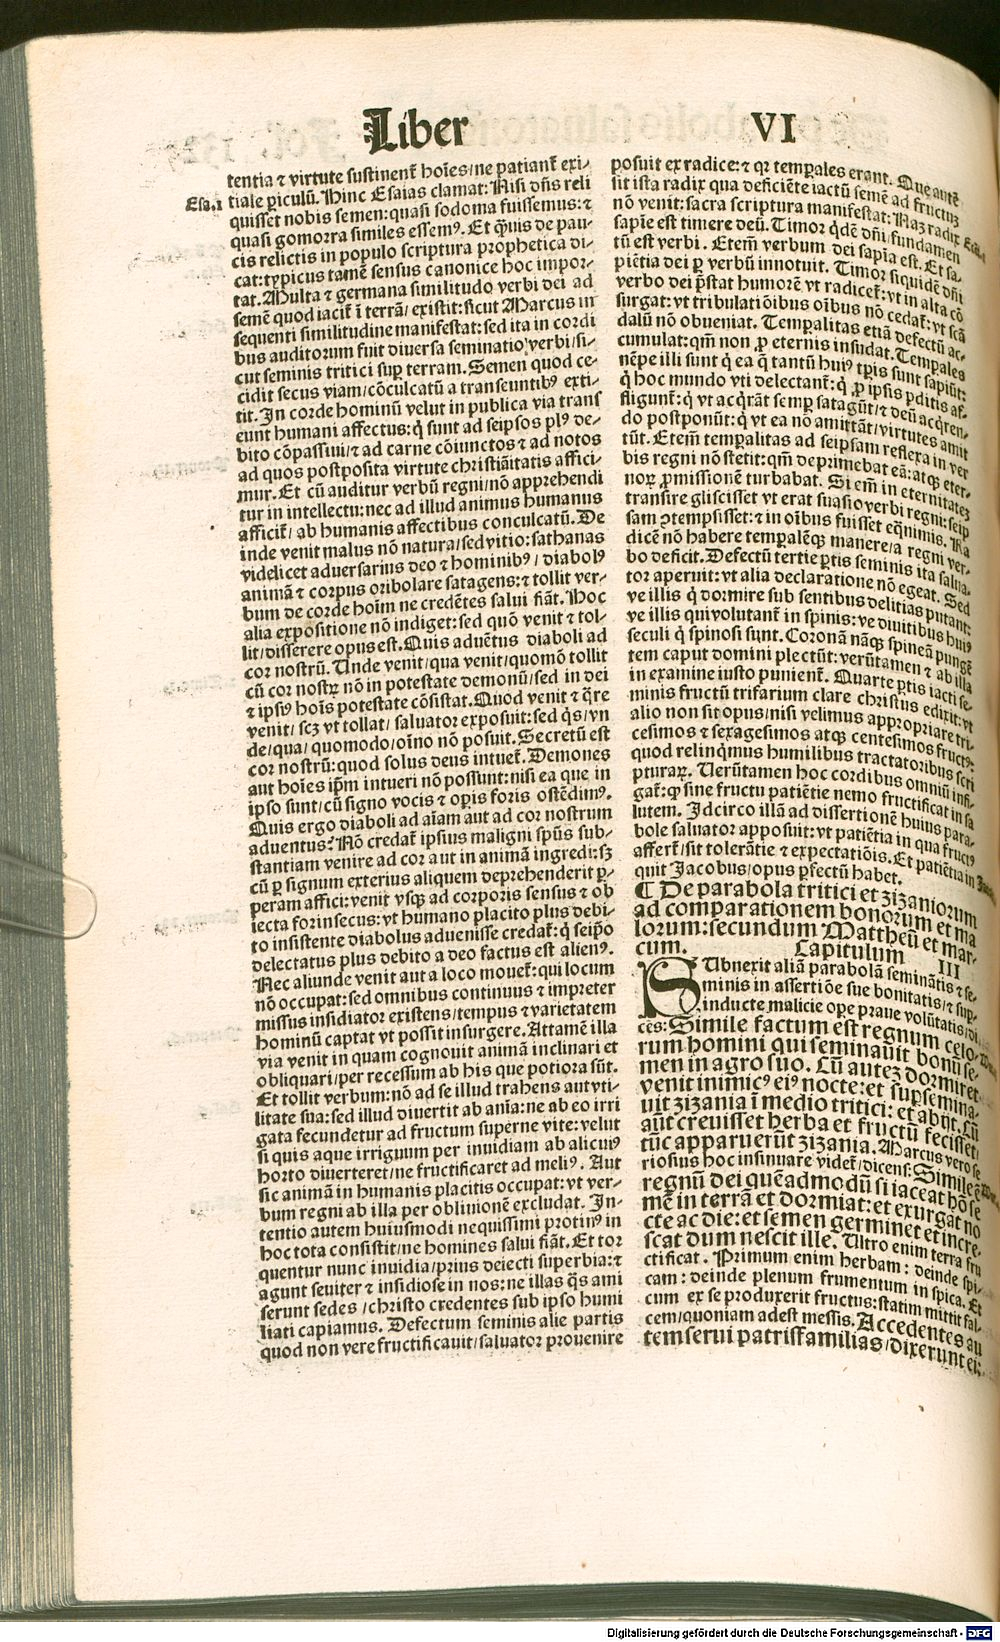 Liber VI
tentia ⁊ virtute sustinent̄ hoīes/ne patiant̄ exi-
Esa.i
tiale p̱iculū. Hinc Esaias clamat: Nisi dn̄s reli
quisset nobis semen: quasi sodoma fuissemus: ⁊
quasi gomorra similes essemꝰ. Et q̄uis de pau-
cis relictis in populo scriptura prophetica di-
cat: typicus tamē sensus canonice hoc impor-
tat. Multa ⁊ germana similitudo verbi dei ad
semē quod iacit̄ ī terrā/ existit: sicut Marcus in
sequenti similitudine manifestat: sed ita in cordi
bus auditorum fuit diuersa seminatio verbi/si-
cut seminis tritici sup̱ terram. Semen quod ce-
cidit secus viam/cōculcatū a transeuntibꝰ exti-
tit. In corde hominū velut in publica via trans
eunt humani affectus: q̇ sunt ad seipsos plꝰ de-
bito cōpassiui/⁊ ad carne cōiunctos ⁊ ad notos
ad quos postposita virtute christiāitatis affici-
mur. Et cū auditur verbū regni/nō apprehendi
tur in intellectu: nec ad illud animus humanus
afficit̄/ ab humanis affectibus conculcatū. De
inde venit malus nō natura/sed vitio: sathanas
videlicet aduersarius deo ⁊ hominibꝰ/ diabolꝰ
animā ⁊ corpus oribolare satagens: ⁊ tollit ver-
bum de corde hoīm ne credētes salui fiāt. Hoc
alia expositione nō indiget: sed quō venit ⁊ tol-
lit/disserere opus est. Quis aduētus diaboli ad
cor nostrū. Unde venit/qua venit/quomō tollit
cū cor nostrꝝ nō in potestate demonū/sed in dei
⁊ ipsiꝰ hoīs potestate cōsistat. Quod venit ⁊ q̄re
venit/ scꝫ vt tollat/ saluator exposuit: sed q̇s/vn
de/qua/ quomodo/oīno nō posuit. Secretū est
cor nostrū: quod solus deus intuet̄. Demones
aut hoīes ip̄m intueri nō possunt: nisi ea que in
ipso sunt/cū signo vocis ⁊ op̱is foris ostēdimꝰ.
Quis ergo diaboli ad aīam aut ad cor nostrum
aduentus? Nō credat̄ ipsius maligni spūs sub-
stantiam venire ad cor aut in animā ingredi: sꝫ
cū p̱ signum exterius aliquem deprehenderit p̱-
peram affici: venit vsq̄ ad corporis sensus ⁊ ob
iecta forinsecus: vt humano placito plus debi-
to insistente diabolus aduenisse credat̄: q̇ seip̄o
delectatus plus debito a deo factus est alienꝰ.
Nec aliunde venit aut a loco mouet̄: qui locum
nō occupat: sed omnibus continuus ⁊ impreter
missus insidiator existens/tempus ⁊ varietatem
hominū captat vt possit insurgere. Attamē illa
via venit in quam cognouit animā inclinari et
obliquari/per recessum ab his que potiora sūt.
Et tollit verbum: nō ad se illud trahens aut vti-
litate sua: sed illud diuertit ab aīa: ne ab eo irri
gata fecundetur ad fructum superne vite: velut
si quis aque irriguum per inuidiam ab alicuiꝰ
horto diuerteret/ne fructificaret ad meliꝰ. Aut
sic animā in humanis placitis occupat: vt ver-
bum regni ab illa per obliuionē excludat. In-
tentio autem huiusmodi nequissimi protinꝰ in
hoc tota consistit/ne homines salui fiāt. Et tor
quentur nunc inuidia/prius deiecti superbia: ⁊
agunt seuiter ⁊ insidiose in nos: ne illas q̇s ami
serunt sedes /christo credentes sub ipso humi
liati capiamus. Defectum seminis alie partis
quod non vere fructificauit/saluator prouenire
posuit ex radice: ⁊ qꝛ temp̱ales erant. Que autē
sit ista radix qua deficiēte iactū semē ad fructuꝫ
nō venit: sacra scriptura manifestat: Naꝫ radix
sapīe est timere deū. Timor q̇dē dn̄i/fundamen
tū est verbi. Etem̄ verbum dei sapīa est. Et sa-
piētia dei p̱ verbū innotuit. Timor siquidē dn̄i
verbo dei p̄stat humorē vt radicet̄: vt in alta cō
surgat: vt tribulatiōibus oībus nō cedat̄: vt scā
dalū nō obueniat. Temp̱alitas etiā defectū ac-
cumulat: qm̄ non ꝓ eternis insudat. Temp̱ales
nēpe illi sunt q̇ ea q̄ tantū huiꝰ tp̄is sunt sapiūt:
q̇ hoc mundo vti delectant̄: q̇ ꝓ ipsis p̱ditis af-
fligunt̄: q̇ vt acq̇rāt semp̱ satagūt/⁊ deū acq̇ren-
do postponūt: q̇ vt ea nō amittāt/virtutes amit
tūt. Etem̄ temp̱alitas ad seipsam reflexa in ver
bis regni nō stetit: qm̄ deprimebat eā: atq̄ eter-
noꝝ ꝓmissionē turbabat. Si em̄ in eternitateꝫ
transire gliscisset vt erat suasio verbi regni: seip
sam ꝯtempsisset: ⁊ in oībus fuisset eq̇nimis. Na
dicē nō habere temp̱alēq̄ manere/a regni ver-
bo deficit. Defectū tertie p̱tis seminis ita salua-
tor aperuit: vt alia declaratione nō egeat. Sed
ve illis q̇ dormire sub sentibus delitias putant:
ve illis qui volutant̄ in spinis: ve diuitibus huiꝰ
seculi q̇ spinosi sunt. Coronā nāq̄ spineā pungē
tem caput domini plectūt: verūtamen ⁊ ab illa
in examine iusto punient̄. Quarte p̱tis iacti se-
minis fructū trifarium clare christus edixit: vt
alio non sit opus/nisi velimus appropriare tri-
cesimos ⁊ sexagesimos atq̄ centesimos fructꝰ:
quod relinq̇mus humilibus tractatoribus scri
pturaꝝ. Uerūtamen hoc cordibus omniū infi-
gat̄: ꝙ sine fructu patiētie nemo fructificat in sa
lutem. Idcirco illā ad dissertionē huius para-
bole saluator apposuit: vt patiētia in qua fructꝰ
affert̄/sit tolerātie ⁊ expectatiōis. Et patiētia in
quit Jacobus/opus p̱fectū habet.
¶ De parabola tritici et zizaniorum
ad comparationem bonorum et ma
lorum: secundum Mattheū et mar-
cum. Capitulum III
SUbnexit aliā parabolā seminātis ⁊ se-
minis in assertiōe sue bonitatis/⁊ sup̱-
inducte malicie ope praue volūtatis/di
cēs: Simile factum est regnum celo-
rum homini qui seminauit bonū se-
men in agro suo. Cū auteꝫ dormiret
venit inimicꝰ eiꝰ nocte: et sup̱semina-
uit zizania ī medio tritici: et abijt. Cū
aūt creuisset herba et fructū fecisset/
tūc apparuerūt zizania. Marcus vero se
riosius hoc insinuare videt̄/dicens: Simile ē
regnū dei quēadmodū si iaceat hō se
mē in terrā et dormiat: et exurgat no
cte ac die: et semen germinet et incre-
scat dum nescit ille. Ultro enim terra fru
ctificat. Primum enim herbam: deinde spi-
cam: deinde plenum frumentum in spica. Et
cum ex se produxerit fructus: statim mittit fal-
cem/quoniam adest messis. Accedentes au
tem serui patrisfamilias/dixerunt ei:
Digitalisierung gefördert durch die Deutsche Forschungsgemeinschaft - DFG